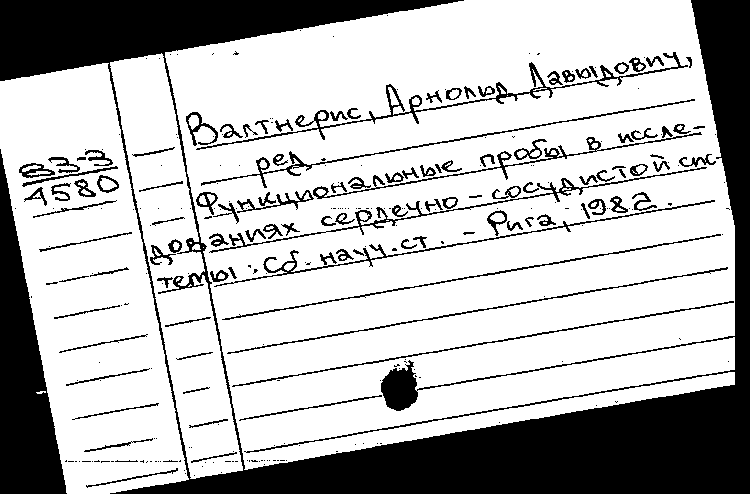 Валтнерис, Арнольд Давыдович,
ред.
В3-3
1580
Функциональные пробы в иссле-
дованиях сердечно-сосудистой сис-
темы: Сб. науч. ст. - Рига, 1982.